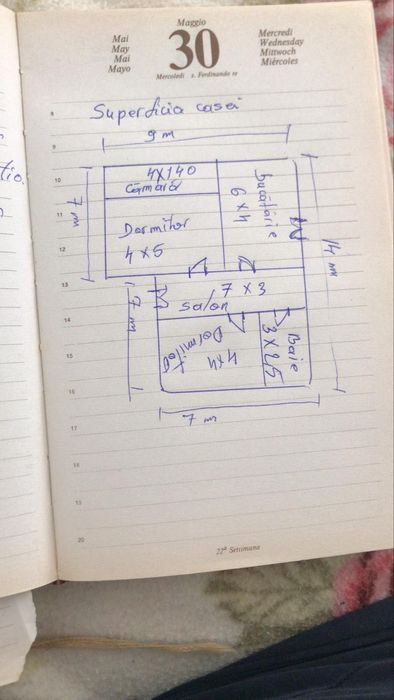 Maggio
Mai
May
Mai
Mayo
30
Mercredi
Wednesday
Mittwoch
Miércoles
Mercoledì s. Ferdinando re
8
Superficia casei
9 m
9
10
4X140
Cămară
Bucătărie
6 X 4
7 m
11
Dormitor
12
4 X 5
14 m
13
7 X 3
salon
7 m
14
Dormitor
4X4
Baie
3 X 2,5
15
16
7 m
17
18
19
20
22ª Settimana